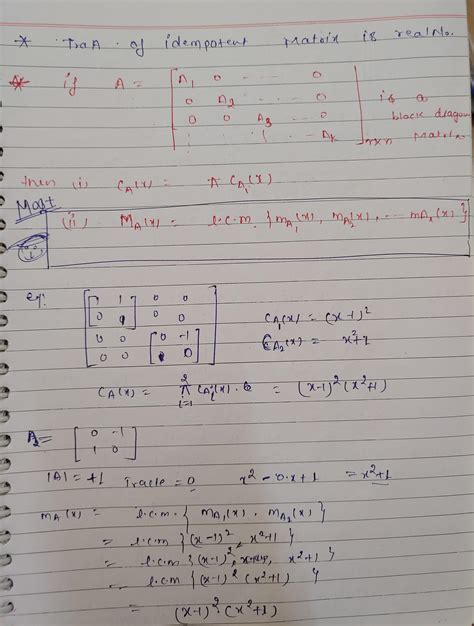 * TraA. of idempotent Matrix is real No.
* if A = [ A1 0 ..... 0
0 A2 ..... 0
0 0 A3 ... 0
⋮ ⋮ ... Ak ]nxn
is a
block diagonal
Matrix
then (i) CA(x) = π CAi(x)
Most
(ii) MA(x) = l.c.m. {mA1(x), mA2(x), ... mAk(x)}
eg:
[ 1 1 0 0
0 1 0 0
0 0 0 -1
0 0 1 0 ]
CA1(x) = (x-1)²
CA2(x) = x²+1
CA(x) = 2 π i=1 CAi(x) = (x-1)² (x²+1)
A2 = [ 0 -1
1 0 ]
|A| = +1 Tracle = 0 x² - 0.x + 1 = x²+1
mA(x) = l.c.m. { mA1(x), mA2(x) }
= l.c.m { (x-1)², x²+1 }
= l.c.m { (x-1)², x²+1 }
= l.c.m { (x-1)² (x²+1) }
= (x-1)² · (x²+1)